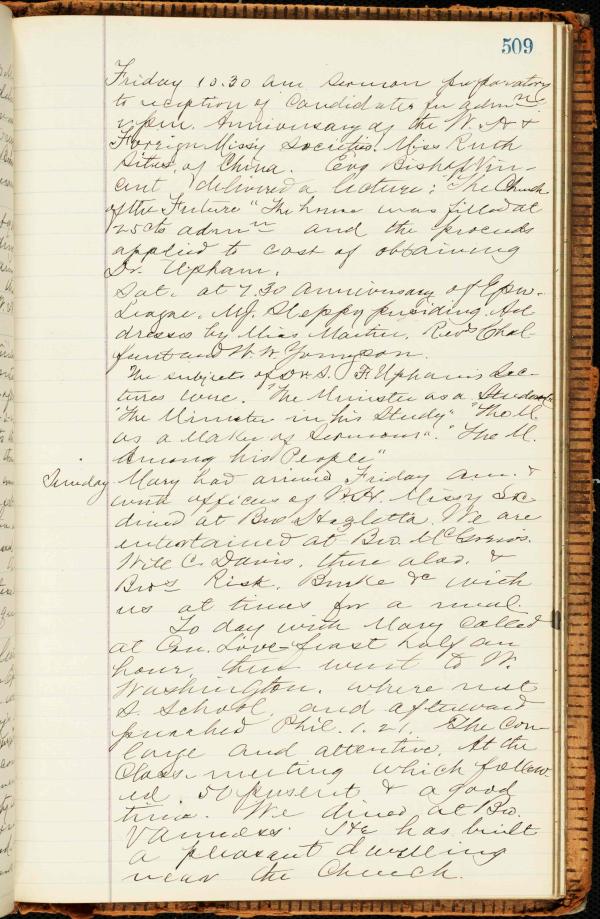 509
Friday 10.30 am Sermon preparatory
to reception of candidates for admn
2 pm. Anniversary of the W. H &
Foreign Missy Societies. Miss Ruth
Sites, of China. Evg Bishop Vin-
cent delivered a lecture: "The Church
of the Future" The house was filled at
25 cts admn and the proceeds
applied to cost of obtaining
Dr. Upham.
Sat. at 7.30 Anniversary of Epw.
League. M.J. Sleppy presiding. Ad
dresses by Miss Revs Chal-
fant and W. W. Youngson.
The subjects of Dr S. F Upham's Lec-
tures were. "The Minister as a Student"
"The Minister in his Study" "The M.
as a Maker of Sermons". "The M.
Among his People"
Mary had arrived Friday am. &
with officers of W.H. Missy Soc
dined at Bro We are
entertained at Bro. McGrews.
Will C. Davis, there also. &
Bros Risk, Burke &c with
us at times for a meal.
To day with Mary called
at Con. Love-feast half an
hour, then went to W.
Washington, where met
S. School, and afterward
preached Phil. 1.21. The Con
large and attentive. At the
Class-meeting which follow
ed 50 present & a good
time. We dined at Bro.
Vanness. He has built
a pleasant dwelling
near the Church.